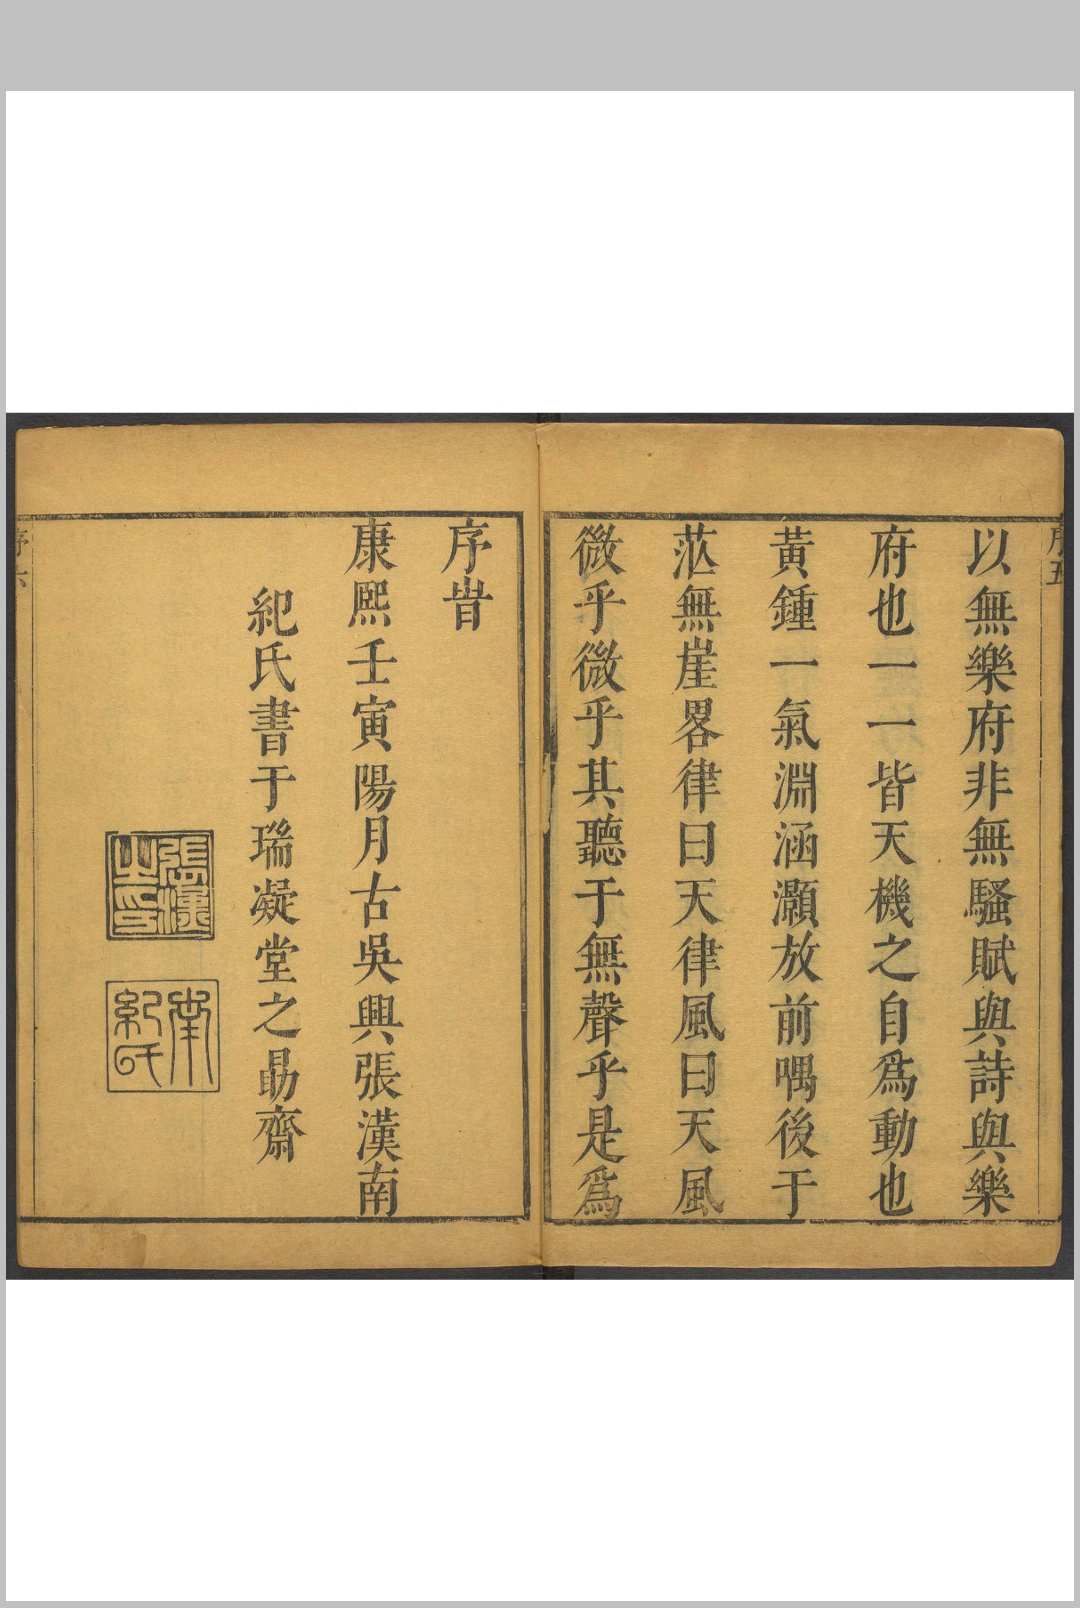 序五
以無樂府非無騷賦與詩與樂
府也一一皆天機之自爲動也
黃鍾一氣淵涵灝放前喁後于
茫無崖畧律曰天律風曰天風
微乎微乎其聽于無聲乎是爲
序旹
康熙壬寅陽月古吳興張漢南
紀氏書于瑞凝堂之勗齋
張漢之印
南紀氏
序六